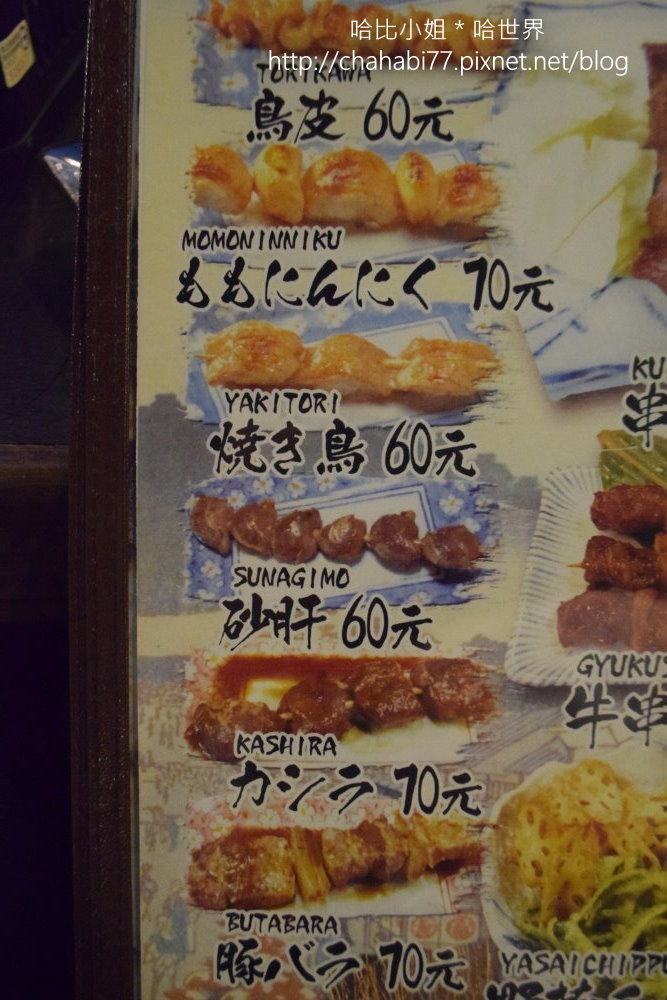 哈比小姐 * 哈世界
http://chahabi77.pixnet.net/blog
TORIKAWA
鳥皮 60元
MOMONINNIKU
ももにんにく 70元
YAKITORI
焼き鳥 60元
SUNAGIMO
砂肝 60元
KASHIRA
カシラ 70元
BUTABARA
豚バラ 70元
KU
串
GYUKUS
牛串
YASAICHIPPU